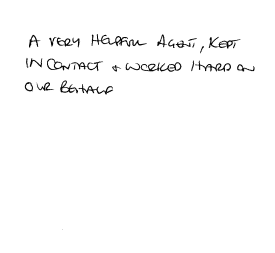 A VERY HELPFUL AGENT, KEPT
IN CONTACT & WORKED HARD ON
OUR BEHALF